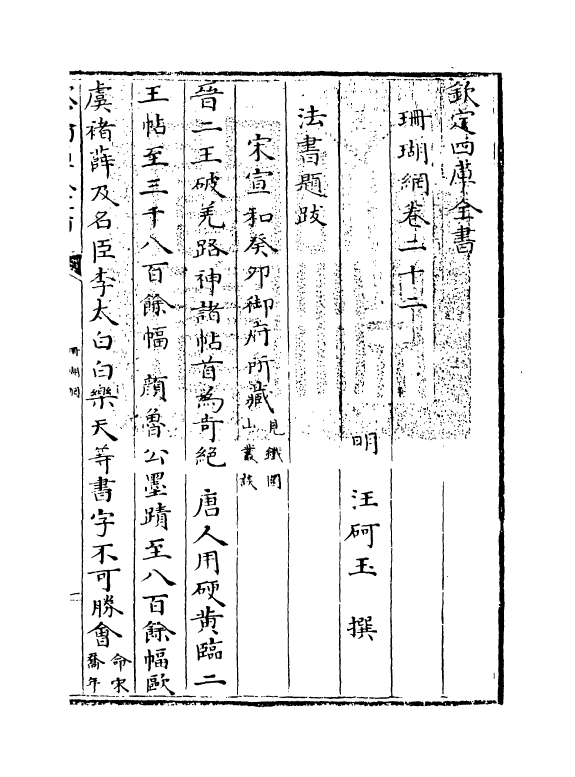 欽定四庫全書
珊瑚網卷二十二
明 汪砢玉 撰
法書題跋
宋宣和癸卯御府所藏見鐵圍山叢談
晉二王破羌路神諸帖首為奇絕 唐人用硬黄臨二
王帖至三千八百餘幅 顔魯公墨蹟至八百餘幅歐
虞褚薛及名臣李太白白樂天等書字不可勝會命宋喬年
珊瑚網
一